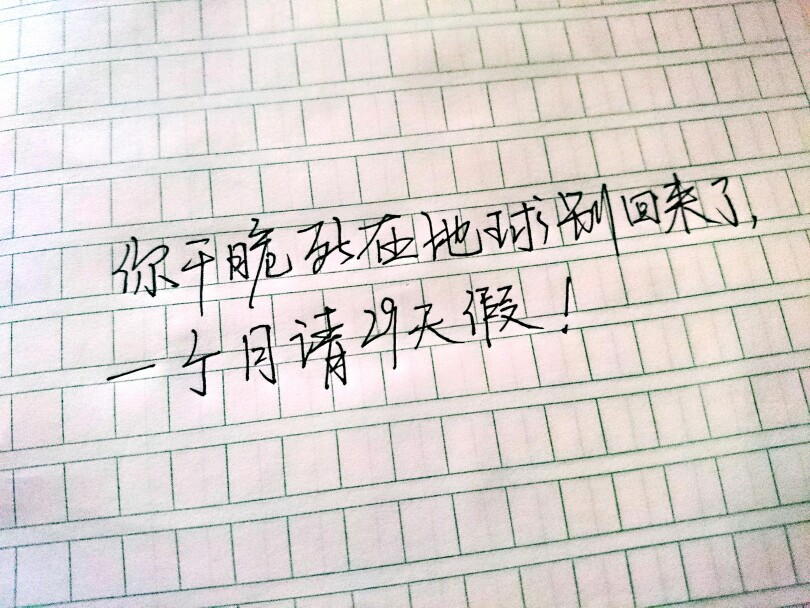 你干脆死在地球别回来了,
一个月请29天假!